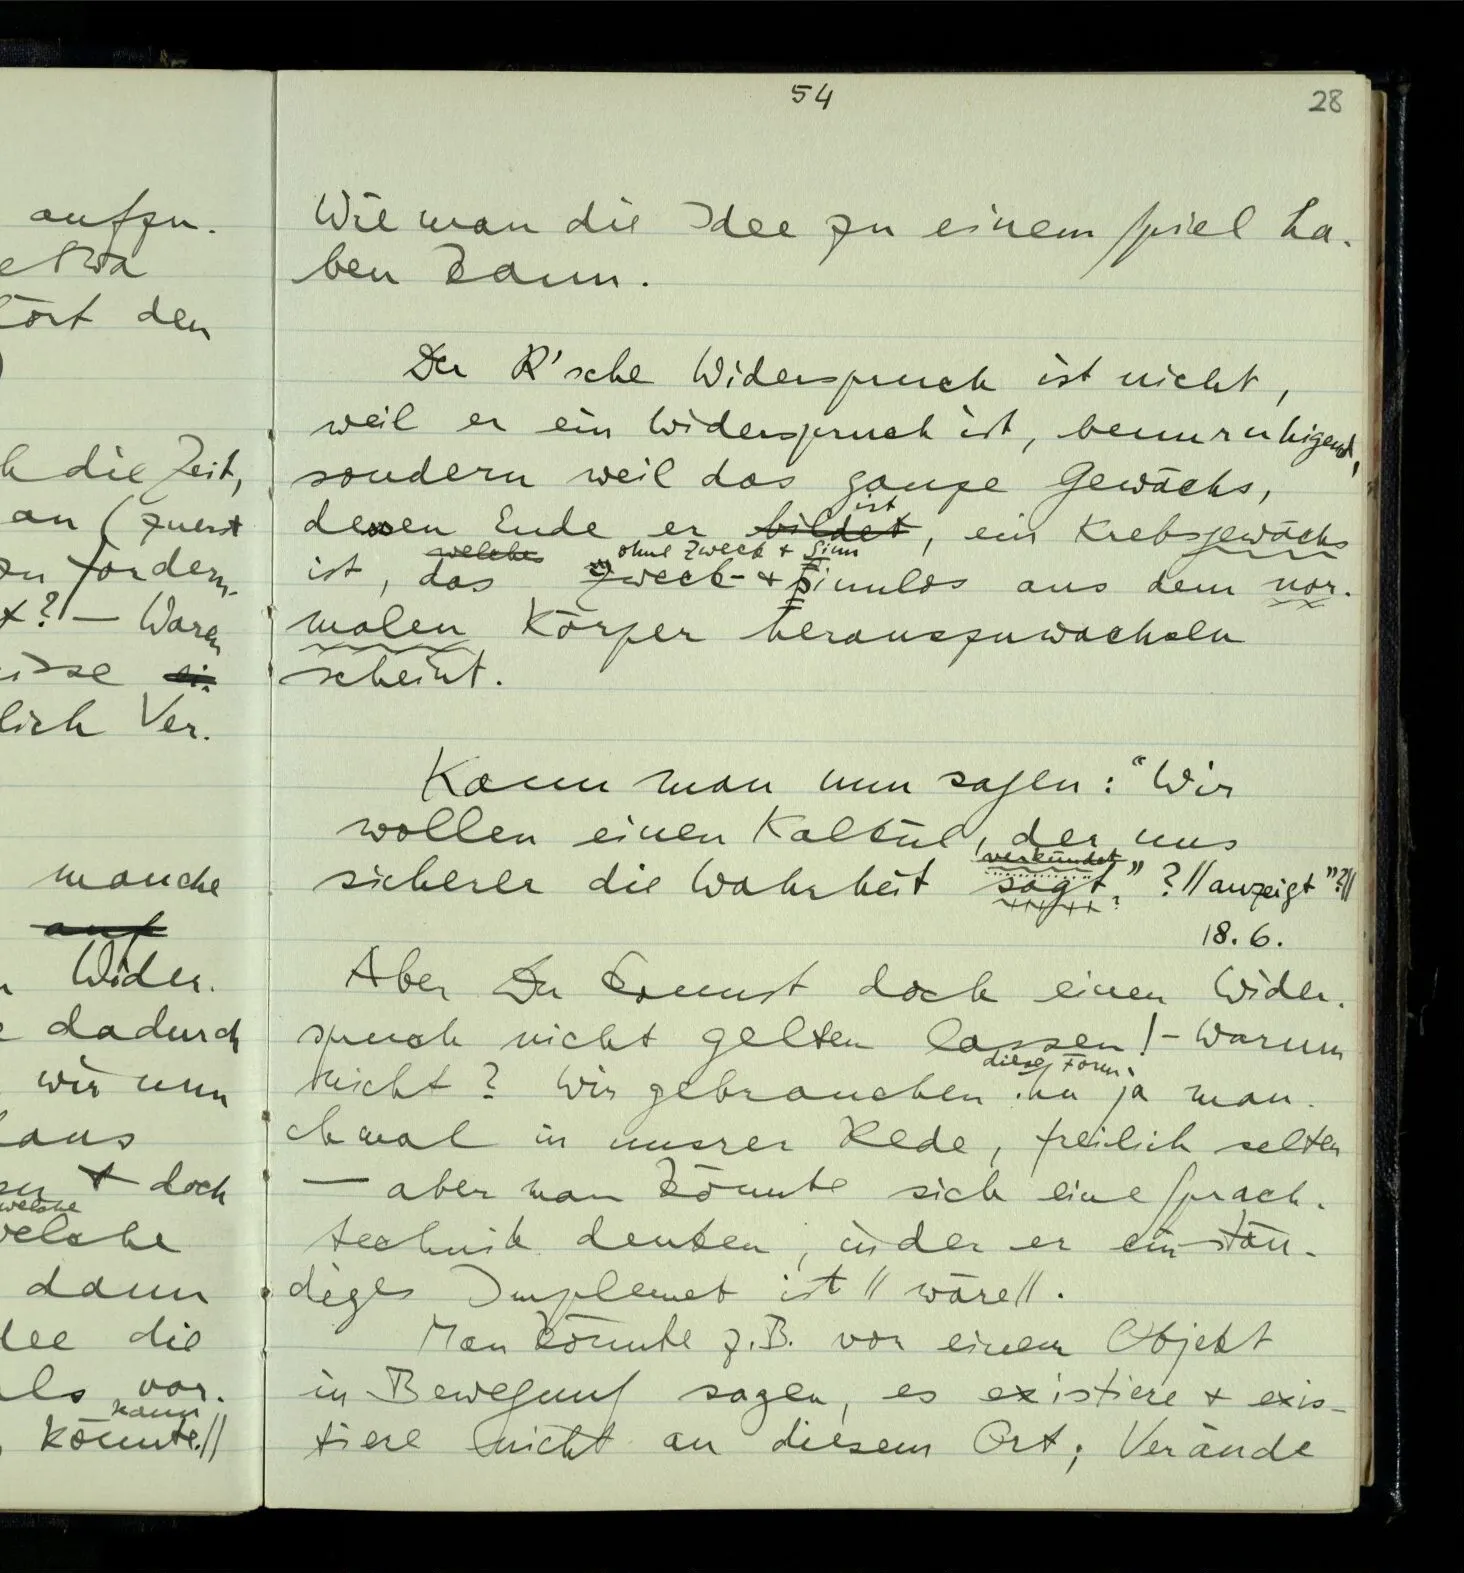 aufzu-
etwa
tört den
54
28
Wie man die Idee zu einem Spiel ha-
ben kann.
Der R'sche Widerspruch ist nicht,
weil er ein Widerspruch ist, beunruhigend,
sondern weil das ganze Gewächs,
dessen Ende er bildet ist, ein Krebsgewächs
ist, welches das ohne Zweck & Sinn zweck- & sinnlos aus dem nor-
malen Körper herauszuwachsen
scheint.
Kann man nun sagen: "Wir
wollen einen Kalkül, der uns
sicherer die Wahrheit verkündet sagt."? // anzeigt"? //
18.6.
Aber Du kannst doch einen Wider-
spruch nicht gelten lassen! – Warum
nicht? Wir gebrauchen diese Form ihn ja man-
chmal in unsrer Rede, freilich selten
— aber man könnte sich eine Sprach-
technik denken, in der er ein stän-
diges Implemet ist // wäre //.
Man könnte z.B. von einem Objekt
in Bewegung sagen, es existiere & exis-
tiere nicht an diesem Ort; Verände
h die Zeit,
an (zuerst
zu fordern.
? — Waren
ei
lich Ver-
manche
auf
Wider-
dadurch
wir nun
aus
& doch
welche
welche
dann
die
als vor-
kann
könnte. //